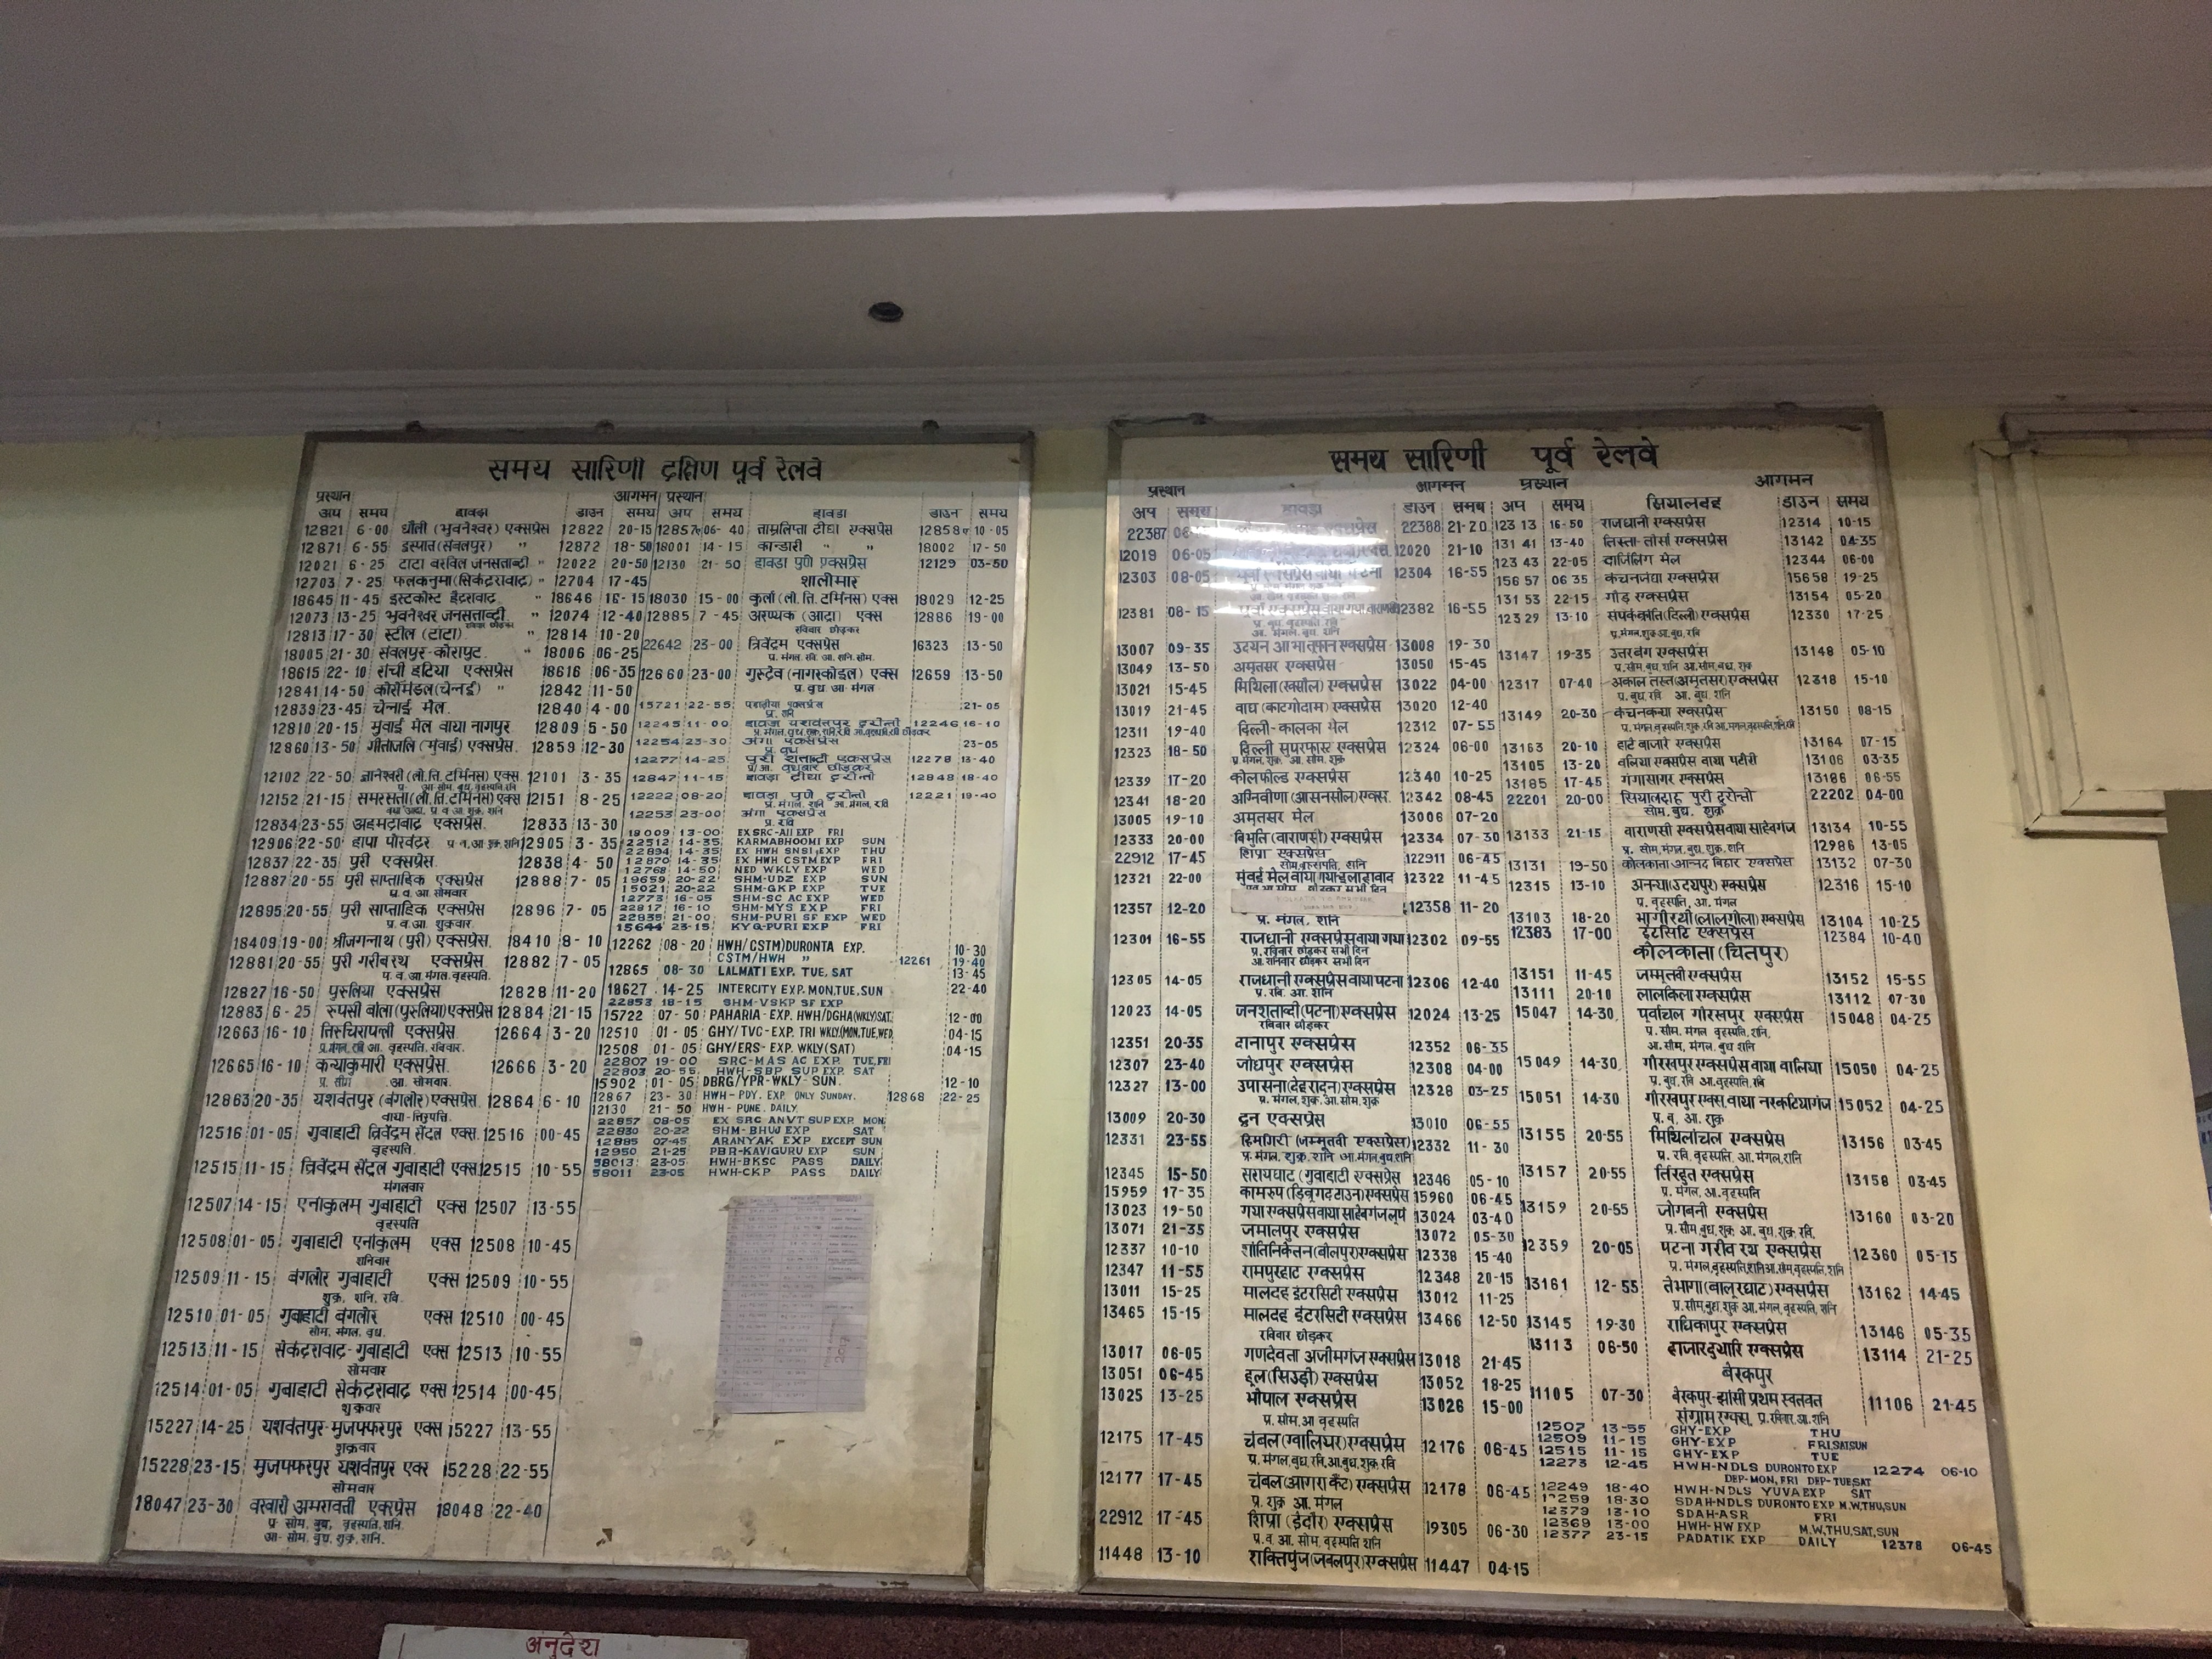 समय सारिणी दक्षिण पूर्व रेलवे
प्रस्थान आगमन प्रस्थान
अप समय हावड़ा डाउन समय अप समय हावड़ा डाउन समय
12821 6-00 धौली (भुवनेश्वर) एक्सप्रेस 12822 20-15
12871 6-55 इस्पात (संबलपुर) " 12872 18-50
12021 6-25 टाटा बरबिल जनसताब्दी " 12022 20-50
12703 7-25 फलकनुमा (सिकंद्रावाद) " 12704 17-45
18645 11-45 इस्टकोस्ट हैद्रावाद " 18646 16-15
12073 13-25 भुवनेश्वर जनसताब्दी " 12074 12-40
12813 17-30 स्टील (टाटा) " 12814 10-20
18005 21-30 संबलपुर-कोरापुट " 18006 06-25
18615 22-10 रांची हटिया एक्सप्रेस 18616 06-35
12841 14-50 कोरोमंडल (चेन्नई) " 12842 11-50
12839 23-45 चेन्नाई मेल 12840 4-00
12810 20-15 मुंवाई मेल वाया नागपुर 12809 5-50
12860 13-50 गीतांजलि (मुंवाई) एक्सप्रेस 12859 12-30
12102 22-50 ज्ञानेश्वरी (लो.ति.टर्मिनस) एक्स 12101 3-35
12152 21-15 समरसता (लो.ति.टर्मिनस) एक्स 12151 8-25
12834 23-55 अहमदावाद एक्सप्रेस 12833 13-30
12906 22-50 हापा पोरबंदर 12905 3-35
12837 22-35 पुरी एक्सप्रेस 12838 4-50
12887 20-55 पुरी साप्ताहिक एक्सप्रेस 12888 7-05
प.व.आ.सोमवार
12895 20-55 पुरी साप्ताहिक एक्सप्रेस 12896 7-05
प्र.व.आ. शुक्रवार
18409 19-00 श्रीजगन्नाथ (पुरी) एक्सप्रेस 18410 8-10
12881 20-55 पुरी गरीबरथ एक्सप्रेस 12882 7-05
प.व.आ.मंगल.वृहस्पति.
12827 16-50 पुरुलिया एक्सप्रेस 12828 11-20
12883 6-25 रूपसी बांला (पुरुलिया) एक्सप्रेस 12884 21-15
12663 16-10 तिरुचिरापल्ली एक्सप्रेस 12664 3-20
प्र.मंगल, रवि आ. वृहस्पति, रविवार.
12665 16-10 कन्याकुमारी एक्सप्रेस 12666 3-20
प्र. सोम आ. सोमवार
12863 20-35 यशवंतपुर (बंगलोर) एक्सप्रेस 12864 6-10
वाया-तिरुपति.
12516 01-05 गुवाहाटी त्रिवेंद्रम सेंट्रल एक्स. 12516 00-45
वृहस्पति.
12515 11-15 त्रिवेंद्रम सेंट्रल गुवाहाटी एक्स 12515 10-55
मंगलवार
12507 14-15 एर्नाकुलम गुवाहाटी एक्स 12507 13-55
वृहस्पति
12508 01-05 गुवाहाटी एर्नाकुलम एक्स 12508 10-45
शनिवार
12509 11-15 बंगलोर गुवाहाटी एक्स 12509 10-55
शुक्र, शनि, रवि.
12510 01-05 गुवाहाटी बंगलोर एक्स 12510 00-45
सोम, मंगल, वुध.
12513 11-15 सेकंद्रावाद-गुवाहाटी एक्स 12513 10-55
सोमवार
12514 01-05 गुवाहाटी सेकंद्रावाद एक्स 12514 00-45
शुक्रवार
15227 14-25 यशवंतपुर-मुजफ्फरपुर एक्स 15227 13-55
शुक्रवार
15228 23-15 मुजफ्फरपुर यशवंतपुर एक्स 15228 22-55
सोमवार
18047 23-30 वस्वारी अमरावती एक्स्प्रेस 18048 22-40
प्र. सोम, वुध, वृहस्पति, शनि.
आ- सोम, वुध, शुक्र, शनि.
12857 06-40 ताम्रलिप्ता दीघा एक्सप्रेस 12858 10-05
18001 14-15 कान्डारी " " 18002 17-50
12130 21-50 हावड़ा पुणे एक्सप्रेस 12129 03-50
शालीमार
18030 15-00 कुर्ला (लो.ति.टर्मिनस) एक्स 18029 12-25
12885 7-45 अरण्यक (आद्रा) एक्स 12886 19-00
रविवार छोड़कर
22642 23-00 त्रिवेंद्रम एक्सप्रेस 16323 13-50
प्र. मंगल, रवि आ. शनि, सोम.
12660 23-00 गुरुदेव (नागरकोइल) एक्स 12659 13-50
प्र. वुध आ- मंगल
15721 22-55 पहाड़ीया एक्सप्रेस 21-05
12245 11-00 हावड़ा यशवंतपुर दुरोन्तो 12246 16-10
12254 23-30 अंगा एक्सप्रेस 23-05
12277 14-25 पुरी शताब्दी एक्सप्रेस 12278 13-40
12847 11-15 हावड़ा दीघा दुरोन्तो 12848 18-40
12222 08-20 हावड़ा पुणे दुरोन्तो 12221 19-40
12253 23-00 अंगा एक्सप्रेस
18009 13-00 EX SRC-AII EXP FRI
22512 14-35 KARMABHOOMI EXP SUN
22894 14-35 EX HWH SNSI EXP THU
12870 14-35 EX HWH CSTM EXP FRI
12768 14-50 NED WKLY EXP WED
19659 20-22 SHM-UDZ EXP SUN
15021 20-22 SHM-GKP EXP TUE
12773 16-05 SHM-SC AC EXP WED
22817 16-10 SHM-MYS EXP FRI
22835 21-00 SHM-PURI SF EXP WED
15644 23-15 KYQ-PURI EXP FRI
12262 08-20 HWH/CSTM) DURONTA EXP. 10-30
CSTM/HWH " 12261 19-40
12865 08-30 LALMATI EXP. TUE, SAT 13-45
18627 14-25 INTERCITY EXP. MON, TUE, SUN 22-40
22853 18-15 SHM-VSKP SF EXP
15722 07-50 PAHARIA-EXP. HWH/DGHA (WKLY) SAT. 12-00
12510 01-05 GHY/TVC-EXP. TRI WKLY (MON, TUE, WED. 04-15
12508 01-05 GHY/ERS-EXP. WKLY (SAT) 04-15
22807 19-00 SRC-MAS AC EXP TUE, FRI
22803 20-55 HWH-SBP SUP EXP SAT
15902 01-05 DBRG/YPR-WKLY-SUN. 12-10
12867 23-30 HWH-PDY. EXP. ONLY SUNDAY. 12868 22-25
12130 21-50 HWH-PUNE. DAILY.
22857 08-05 EX SRC ANVT SUP EXP. MON
22830 20-22 SHM-BHUJ EXP SAT
12885 07-45 ARANYAK EXP EXCEPT SUN
12950 21-25 PBR-KAVIGURU EXP SUN
58013 23-05 HWH-BKSC PASS DAILY
58011 23-05 HWH-CKP PASS DAILY
समय सारिणी पूर्व रेलवे
प्रस्थान आगमन प्रस्थान आगमन
अप समय हावड़ा डाउन समय अप समय सियालदह डाउन समय
22387 22388 21-20
12019 06-05 12020 21-10
12303 08-05 पूर्वा एक्सप्रेस वाया पटना 12304 16-55
12381 08-15 12382 16-55
13007 09-35 उदयन आभातूफान एक्सप्रेस 13008 19-30
13049 13-50 अमृतसर एक्सप्रेस 13050 15-45
13021 15-45 मिथिला (रक्सौल) एक्सप्रेस 13022 04-00
13019 21-45 वाघ (काटगोदाम) एक्सप्रेस 13020 12-40
12311 19-40 दिल्ली-कालका मेल 12312 07-55
12323 18-50 दिल्ली सुपरफास्ट एक्सप्रेस 12324 06-00
प्र.मंगल, शुक्र. आ. सोम, शुक्र
12339 17-20 कोलफील्ड एक्सप्रेस 12340 10-25
12341 18-20 अग्निवीणा (आसनसोल) एक्स. 12342 08-45
13005 19-10 अमृतसर मेल 13006 07-20
12333 20-00 विभुति (वाराणसी) एक्सप्रेस 12334 07-30
22912 17-45 शिप्रा एक्सप्रेस 122911 06-45
सोम, वृहस्पति, शनि
12321 22-00 मुंवई मेल वाया गया इलाहावाद 12322 11-45
12357 12-20 12358 11-20
प्र. मंगल, शनि
12301 16-55 राजधानी एक्सप्रेस वाया गया 12302 09-55
प्र. रविवार छोड़कर सभी दिन
आ. शनिवार छोड़कर सभी दिन
12305 14-05 राजधानी एक्सप्रेस वाया पटना 12306 12-40
प्र. रवि. आ. शनि
12023 14-05 जनशताब्दी (पटना) एक्सप्रेस 12024 13-25
रविवार छोड़कर
12351 20-35 दानापुर एक्सप्रेस 12352 06-35
12307 23-40 जोधपुर एक्सप्रेस 12308 04-00
12327 13-00 उपासना (देहरादून) एक्सप्रेस 12328 03-25
प्र. मंगल, शुक्र, आ. सोम, शुक्र
13009 20-30 दून एक्सप्रेस 13010 06-55
12331 23-55 हिमगिरी (जम्मुतवी एक्सप्रेस) 12332 11-30
प्र. मंगल, शुक्र, शनि आ.मंगल, बुध, शनि
12345 15-50 सरायघाट (गुवाहाटी) एक्सप्रेस 12346 05-10
15959 17-35 कामरुप (डिब्रुगढ़ टाउन) एक्सप्रेस 15960 06-45
13023 19-50 गया एक्सप्रेस वाया साहेबगंज लूप 13024 03-40
13071 21-35 जमालपुर एक्सप्रेस 13072 05-30
12337 10-10 शांतिनिकेतन (बोलपुर) एक्सप्रेस 12338 15-40
12347 11-55 रामपुरहाट एक्सप्रेस 12348 20-15
13011 15-25 मालदह इंटरसिटी एक्सप्रेस 13012 11-25
13465 15-15 मालदह इंटरसिटी एक्सप्रेस 13466 12-50
रविवार छोड़कर
13017 06-05 गणदेवता अजीमगंज एक्सप्रेस 13018 21-45
13051 06-45 हूल (सिउड़ी) एक्सप्रेस 13052 18-25
13025 13-25 भोपाल एक्सप्रेस 13026 15-00
प्र. सोम, आ वृहस्पति
12175 17-45 चंबल (ग्वालियर) एक्सप्रेस 12176 06-45
प्र. मंगल, बुध, रवि, आ.बुध, शुक्र रवि
12177 17-45 चंबल (आगरा कैंट) एक्सप्रेस 12178 06-45
प्र. शुक्र आ. मंगल
22912 17-45 शिप्रा (इंदौर) एक्सप्रेस 19305 06-30
प्र. व. आ. सोम, वृहस्पति शनि
11448 13-10 शक्तिपुंज (जबलपुर) एक्सप्रेस 11447 04-15
12313 16-50 राजधानी एक्सप्रेस 12314 10-15
13141 13-40 तिस्ता-तोर्सा एक्सप्रेस 13142 04-35
12343 22-05 दार्जिलिंग मेल 12344 06-00
15657 06 35 कंचनजंघा एक्सप्रेस 15658 19-25
13153 22-15 गौड़ एक्सप्रेस 13154 05-20
12329 13-10 संपर्कक्रांति (दिल्ली) एक्सप्रेस 12330 17-25
प्र.मंगल, शुक्र आ. बुध, रवि
13147 19-35 उत्तरबंग एक्सप्रेस 13148 05-10
प्र.सोम, बुध, शनि आ.सोम, बुध, शुक्र
12317 07-40 अकाल तख्त (अमृतसर) एक्सप्रेस 12318 15-10
प्र. बुध, रवि आ. बुध, शनि
13149 20-30 कंचनकन्या एक्सप्रेस 13150 08-15
13163 20-10 हाटे बाजारे एक्सप्रेस 13164 07-15
13105 13-20 वलिया एक्सप्रेस वाया पटौरी 13106 03-35
13185 17-45 गंगासागर एक्सप्रेस 13186 06-55
22201 20-00 सियालदाह पुरी दुरोन्तो 22202 04-00
सोम, बुध, शुक्र
13133 21-15 वाराणसी एक्सप्रेस वाया साहेबगंज 13134 10-55
प्र. सोम, मंगल, बुध, शुक्र, शनि 12986 13-05
13131 19-50 कोलकाता आनन्द विहार एक्सप्रेस 13132 07-30
12315 13-10 अनन्या (उदयपुर) एक्सप्रेस 12316 15-10
प्र. वृहस्पति, आ. मंगल
13103 18-20 भागीरथी (लालगोला) एक्सप्रेस 13104 10-25
12383 17-00 इंटरसिटि एक्सप्रेस 12384 10-40
कोलकाता (चितपुर)
13151 11-45 जम्मुतवी एक्सप्रेस 13152 15-55
13111 20-10 लालकिला एक्सप्रेस 13112 07-30
15047 14-30 पूर्वांचल गोरखपुर एक्सप्रेस 15048 04-25
प्र. सोम, मंगल वृहस्पति, शनि,
आ. सोम, मंगल, बुध शनि
15049 14-30 गोरखपुर एक्सप्रेस वाया वालिया 15050 04-25
प्र. बुध, रवि आ.वृहस्पति, रवि
15051 14-30 गोरखपुर एक्स. वाया नरकटियागंज 15052 04-25
प्र. व. आ. शुक्र
13155 20-55 मिथिलांचल एक्सप्रेस 13156 03-45
प्र. रवि, वृहस्पति, आ. मंगल, शनि
13157 20-55 तिरहुत एक्सप्रेस 13158 03-45
प्र. मंगल, आ. वृहस्पति
13159 20-55 जोगबनी एक्सप्रेस 13160 03-20
प्र. सोम, बुध, शुक्र आ. बुध, शुक्र, रवि,
12359 20-05 पटना गरीव रथ एक्सप्रेस 12360 05-15
13161 12-55 तेभागा (बालूरघाट) एक्सप्रेस 13162 14-45
प्र.सोम, बुध, शुक्र आ.मंगल, वृहस्पति, शनि
13145 19-30 राधिकापुर एक्सप्रेस 13146 05-35
13113 06-50 हाजारदुयारि एक्सप्रेस 13114 21-25
बैरकपुर
11105 07-30 बैरकपुर-झांसी प्रथम स्वतंत्रत 11106 21-45
संग्राम एक्स. प्र.रविवार, आ. शनि
12507 13-55 GHY-EXP THU
12509 11-15 GHY-EXP FRI, SAT, SUN
12515 11-15 GHY-EXP TUE
12273 12-45 HWH-NDLS DURONTO EXP 12274 06-10
DEP-MON, FRI DEP-TUE, SAT
12249 18-40 HWH-NDLS YUVA EXP SAT
12259 18-30 SDAH-NDLS DURONTO EXP M.W, THU, SUN
12379 13-10 SDAH-ASR FRI
12369 13-00 HWH-HW EXP M.W, THU, SAT, SUN
12377 23-15 PADATIK EXP DAILY 12378 06-45
अनुदेश